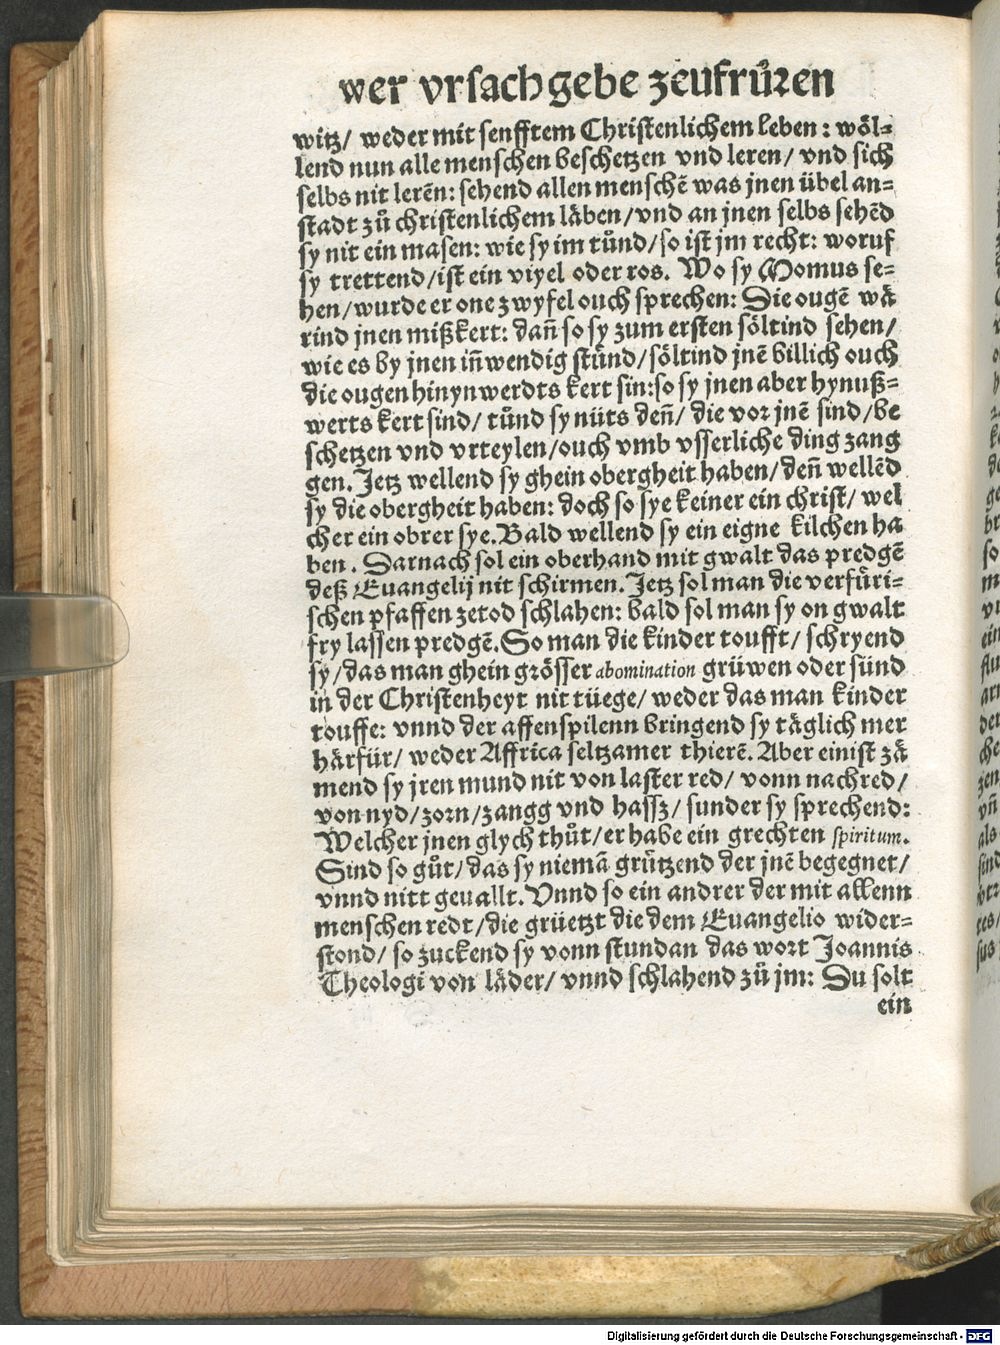 wer vrsach gebe zeufrůren
witz/ weder mit senfftem Christenlichem leben : wöl⸗
lend nun alle menschen beschetzen vnd leren/ vnd sich
selbs nit lerēn: sehend allen menschē was jnen übel an⸗
stadt zů christenlichem läben/vnd an jnen selbs sehēd
sy nit ein masen: wie sy im tůnd/so ist jm recht: woruf
sy trettend/ist ein viyel oder ros. Wo sy Momus se⸗
hen/wurde er one zwyfel ouch sprechen: Die ougē wä
rind jnen mißkert: dañ so sy zum ersten söltind sehen/
wie es by jnen iñwendig stünd/söltind jnē billich ouch
die ougen hinynwerdts kert sin:so sy jnen aber hynuß⸗
werts kert sind/ tůnd sy nüts deñ/ die vor jnē sind/be
schetzen vnd vrteylen/ouch vmb vsserliche ding zang
gen. Jetz wellend sy ghein obergheit haben/deñ wellēd
sy die obergheit haben: doch so sye keiner ein christ/ wel
cher ein obrer sye. Bald wellend sy ein eigne kilchen ha
ben . Darnach sol ein oberhand mit gwalt das predgē
deß Euangelij nit schirmen. Jetz sol man die verfüri⸗
schen pfaffen zetod schlahen: bald sol man sy on gwalt
fry lassen predgē. So man die kinder toufft/ schryend
sy/das man ghein grösser abomination grüwen oder sünd
in der Christenheyt nit tüege/ weder das man kinder
touffe: vnnd der affenspilenn bringend sy täglich mer
härfür/ weder Affrica seltzamer thierē. Aber einist zä
mend sy jren mund nit von laster red/ vonn nachred/
von nyd/zorn/zangg vnd hassz/ sunder sy sprechend:
Welcher jnen glych thůt/er habe ein grechten spiritum.
Sind so gůt/das sy niemā grützend der jnē begegnet/
vnnd nitt geuallt. Vnnd so ein andrer der mit allenn
menschen redt/die grüetzt die dem Euangelio wider⸗
stond/ so zuckend sy vonn stundan das wort Joannis
Theologi von läder/ vnnd schlahend zů jm: Du solt
ein
Digitalisierung gefördert durch die Deutsche Forschungsgemeinschaft - DFG